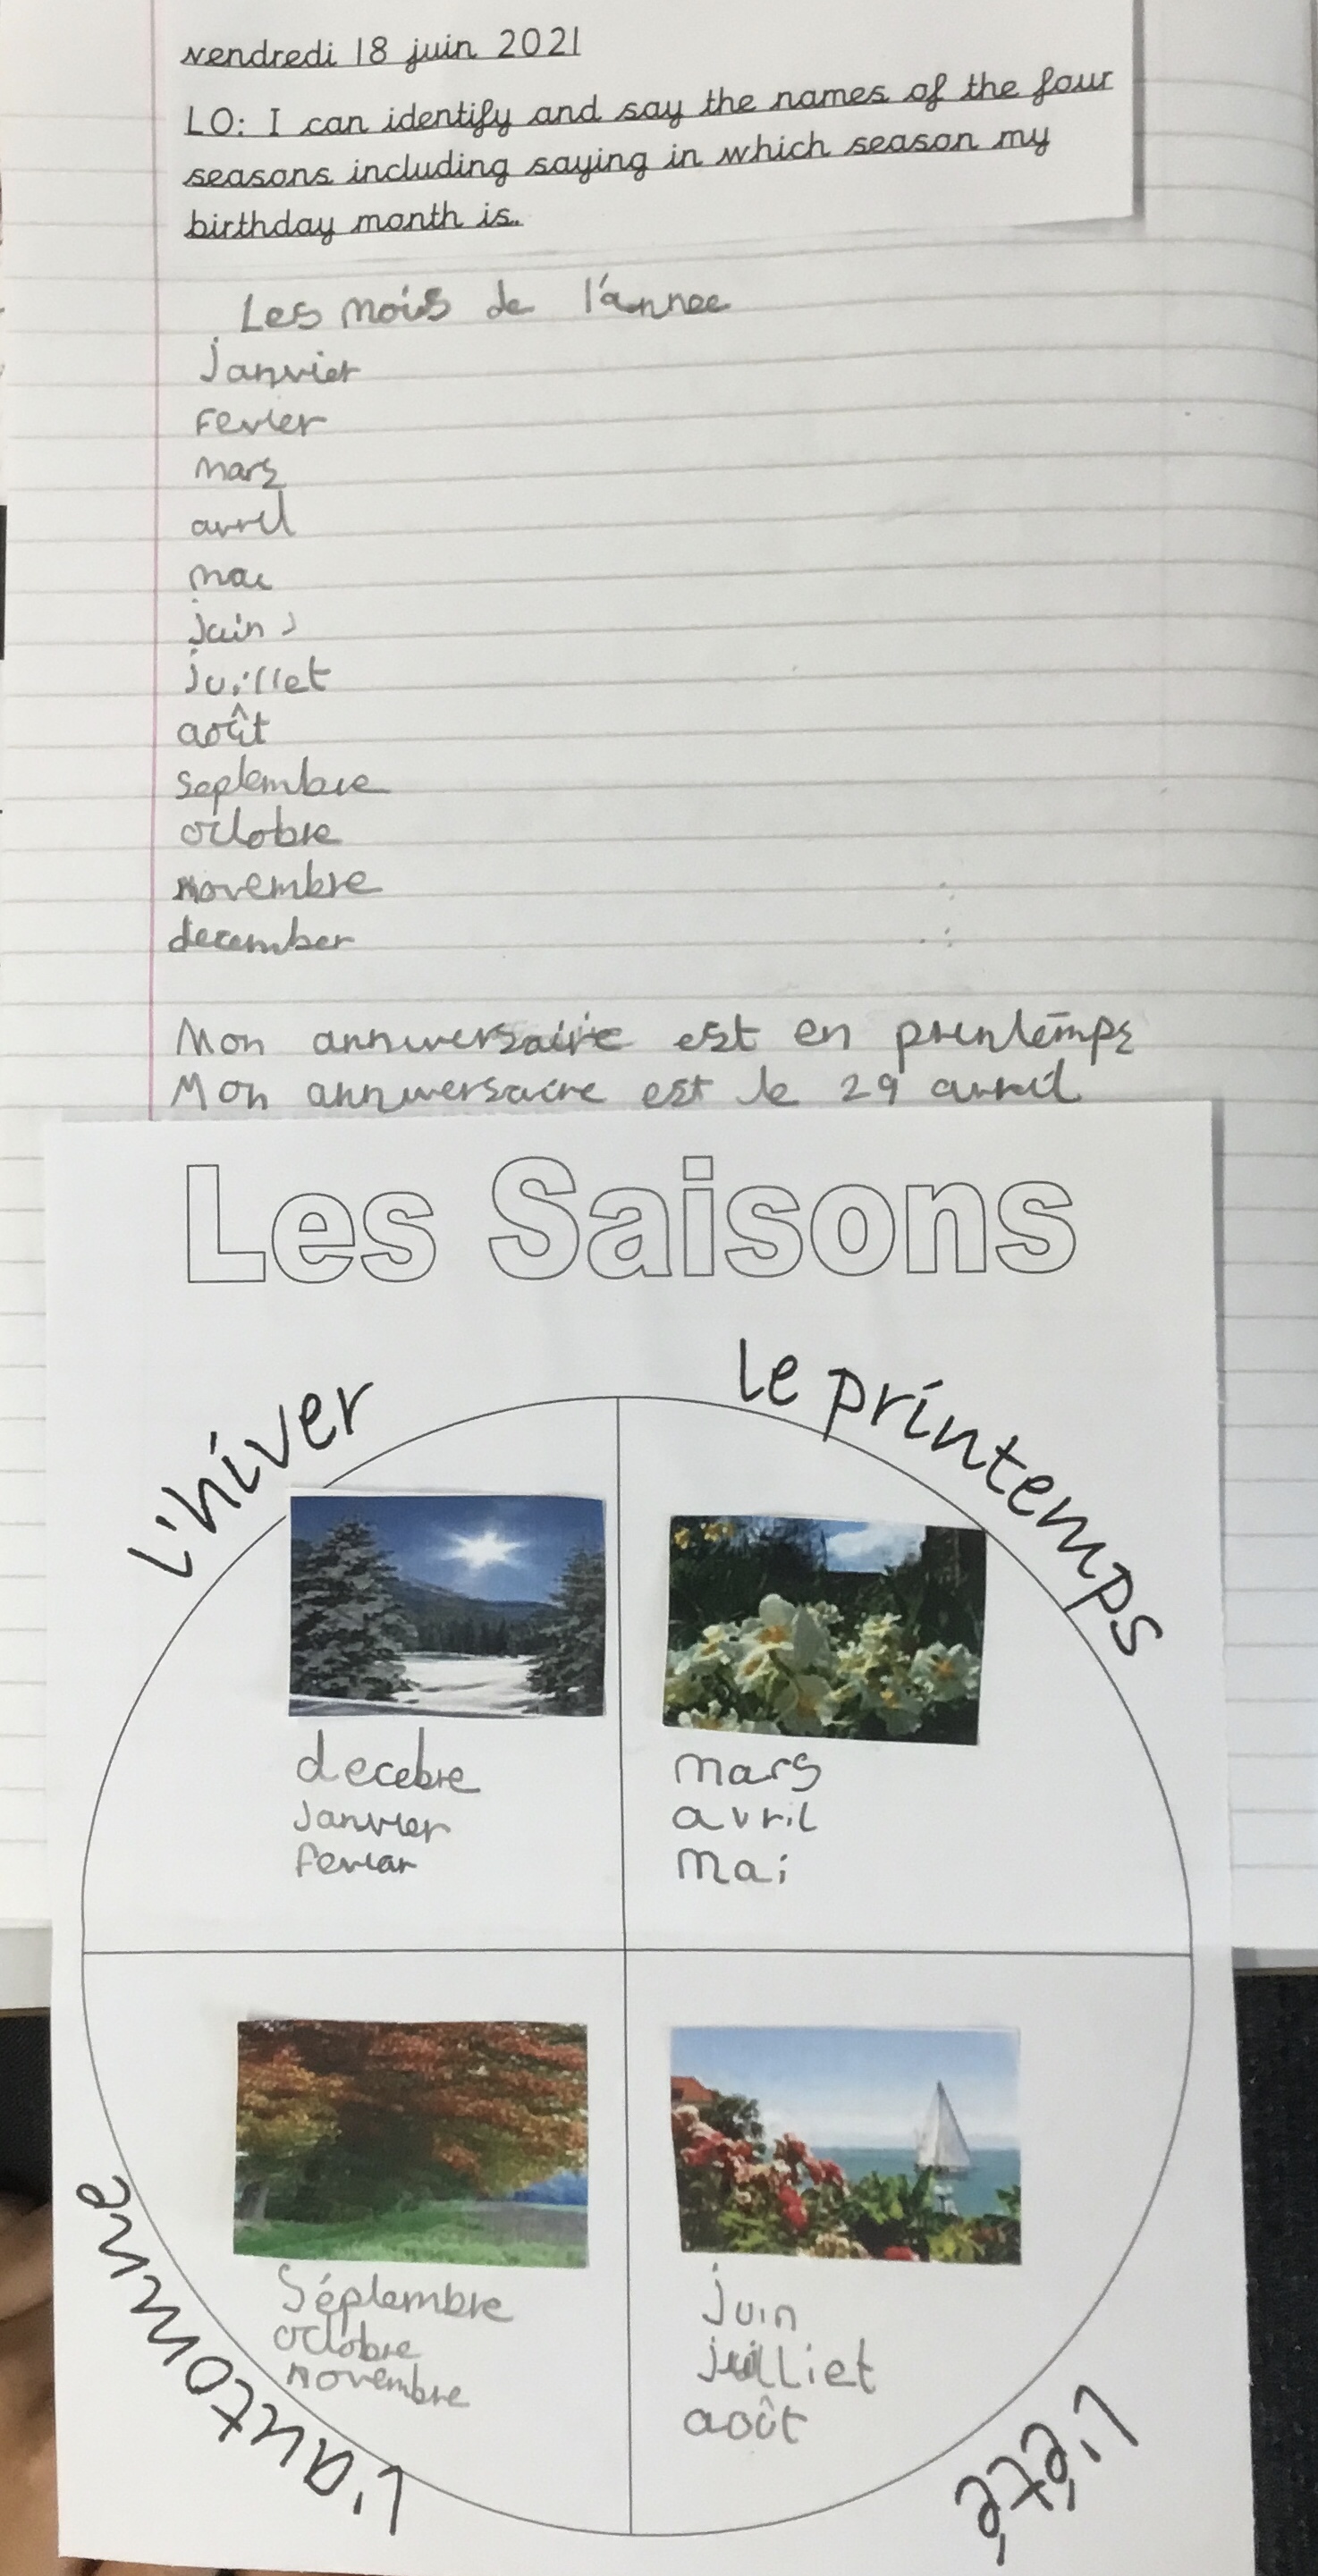 vendredi 18 juin 2021
LO: I can identify and say the names of the four
seasons including saying in which season my
birthday month is.
Les mois de l'annee
janvier
fevrer
mars
avril
mai
juin
juillet
août
septembre
octobre
novembre
december
Mon anniversaire est en printemps
Mon anniversaire est le 29 avril
Les Saisons
l'hiver
le printemps
decebre
janvier
fevrar
mars
avril
mai
septembre
octobre
novembre
juin
juilliet
août
l'automne
l'été